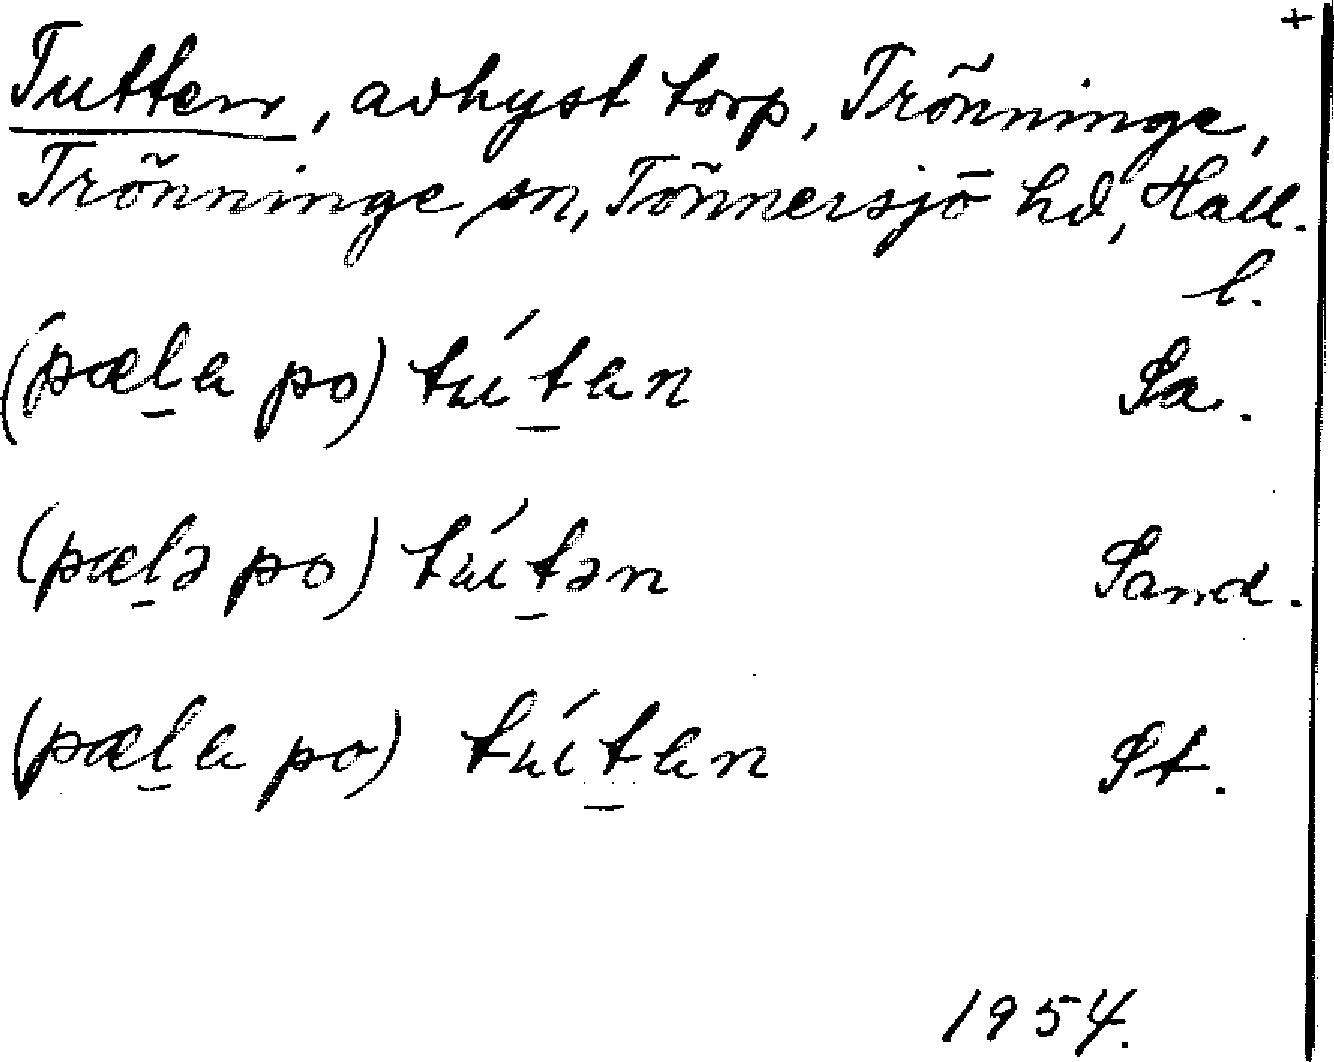 +
Tutten, avhyst torp, Trönninge,
Trönninge sn, Tönnersjö hd, Hall.
l.
(pæl̠a po) tút̠an Sa.
(pæl̠ə po) tút̠ən Sand.
(pæl̠a po) tút̠an St.
1954.